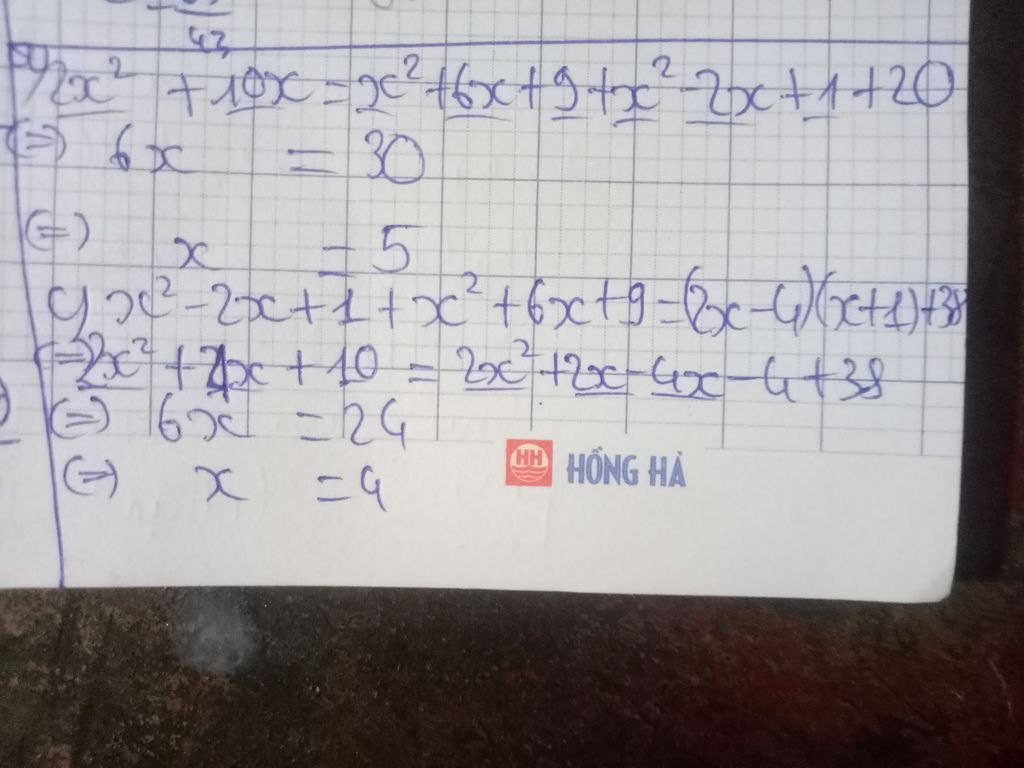 43
2x² + 10x = x² + 6x + 9 + x² - 2x + 1 + 20
(=) 6x = 30
(=) x = 5
x² - 2x + 1 + x² + 6x + 9 = (2x - 4)(x + 1) + 38
(=) 2x² + 4x + 10 = 2x² + 2x - 4x - 4 + 38
(=) 6x = 24
(=) x = 4
HH HỒNG HÀ